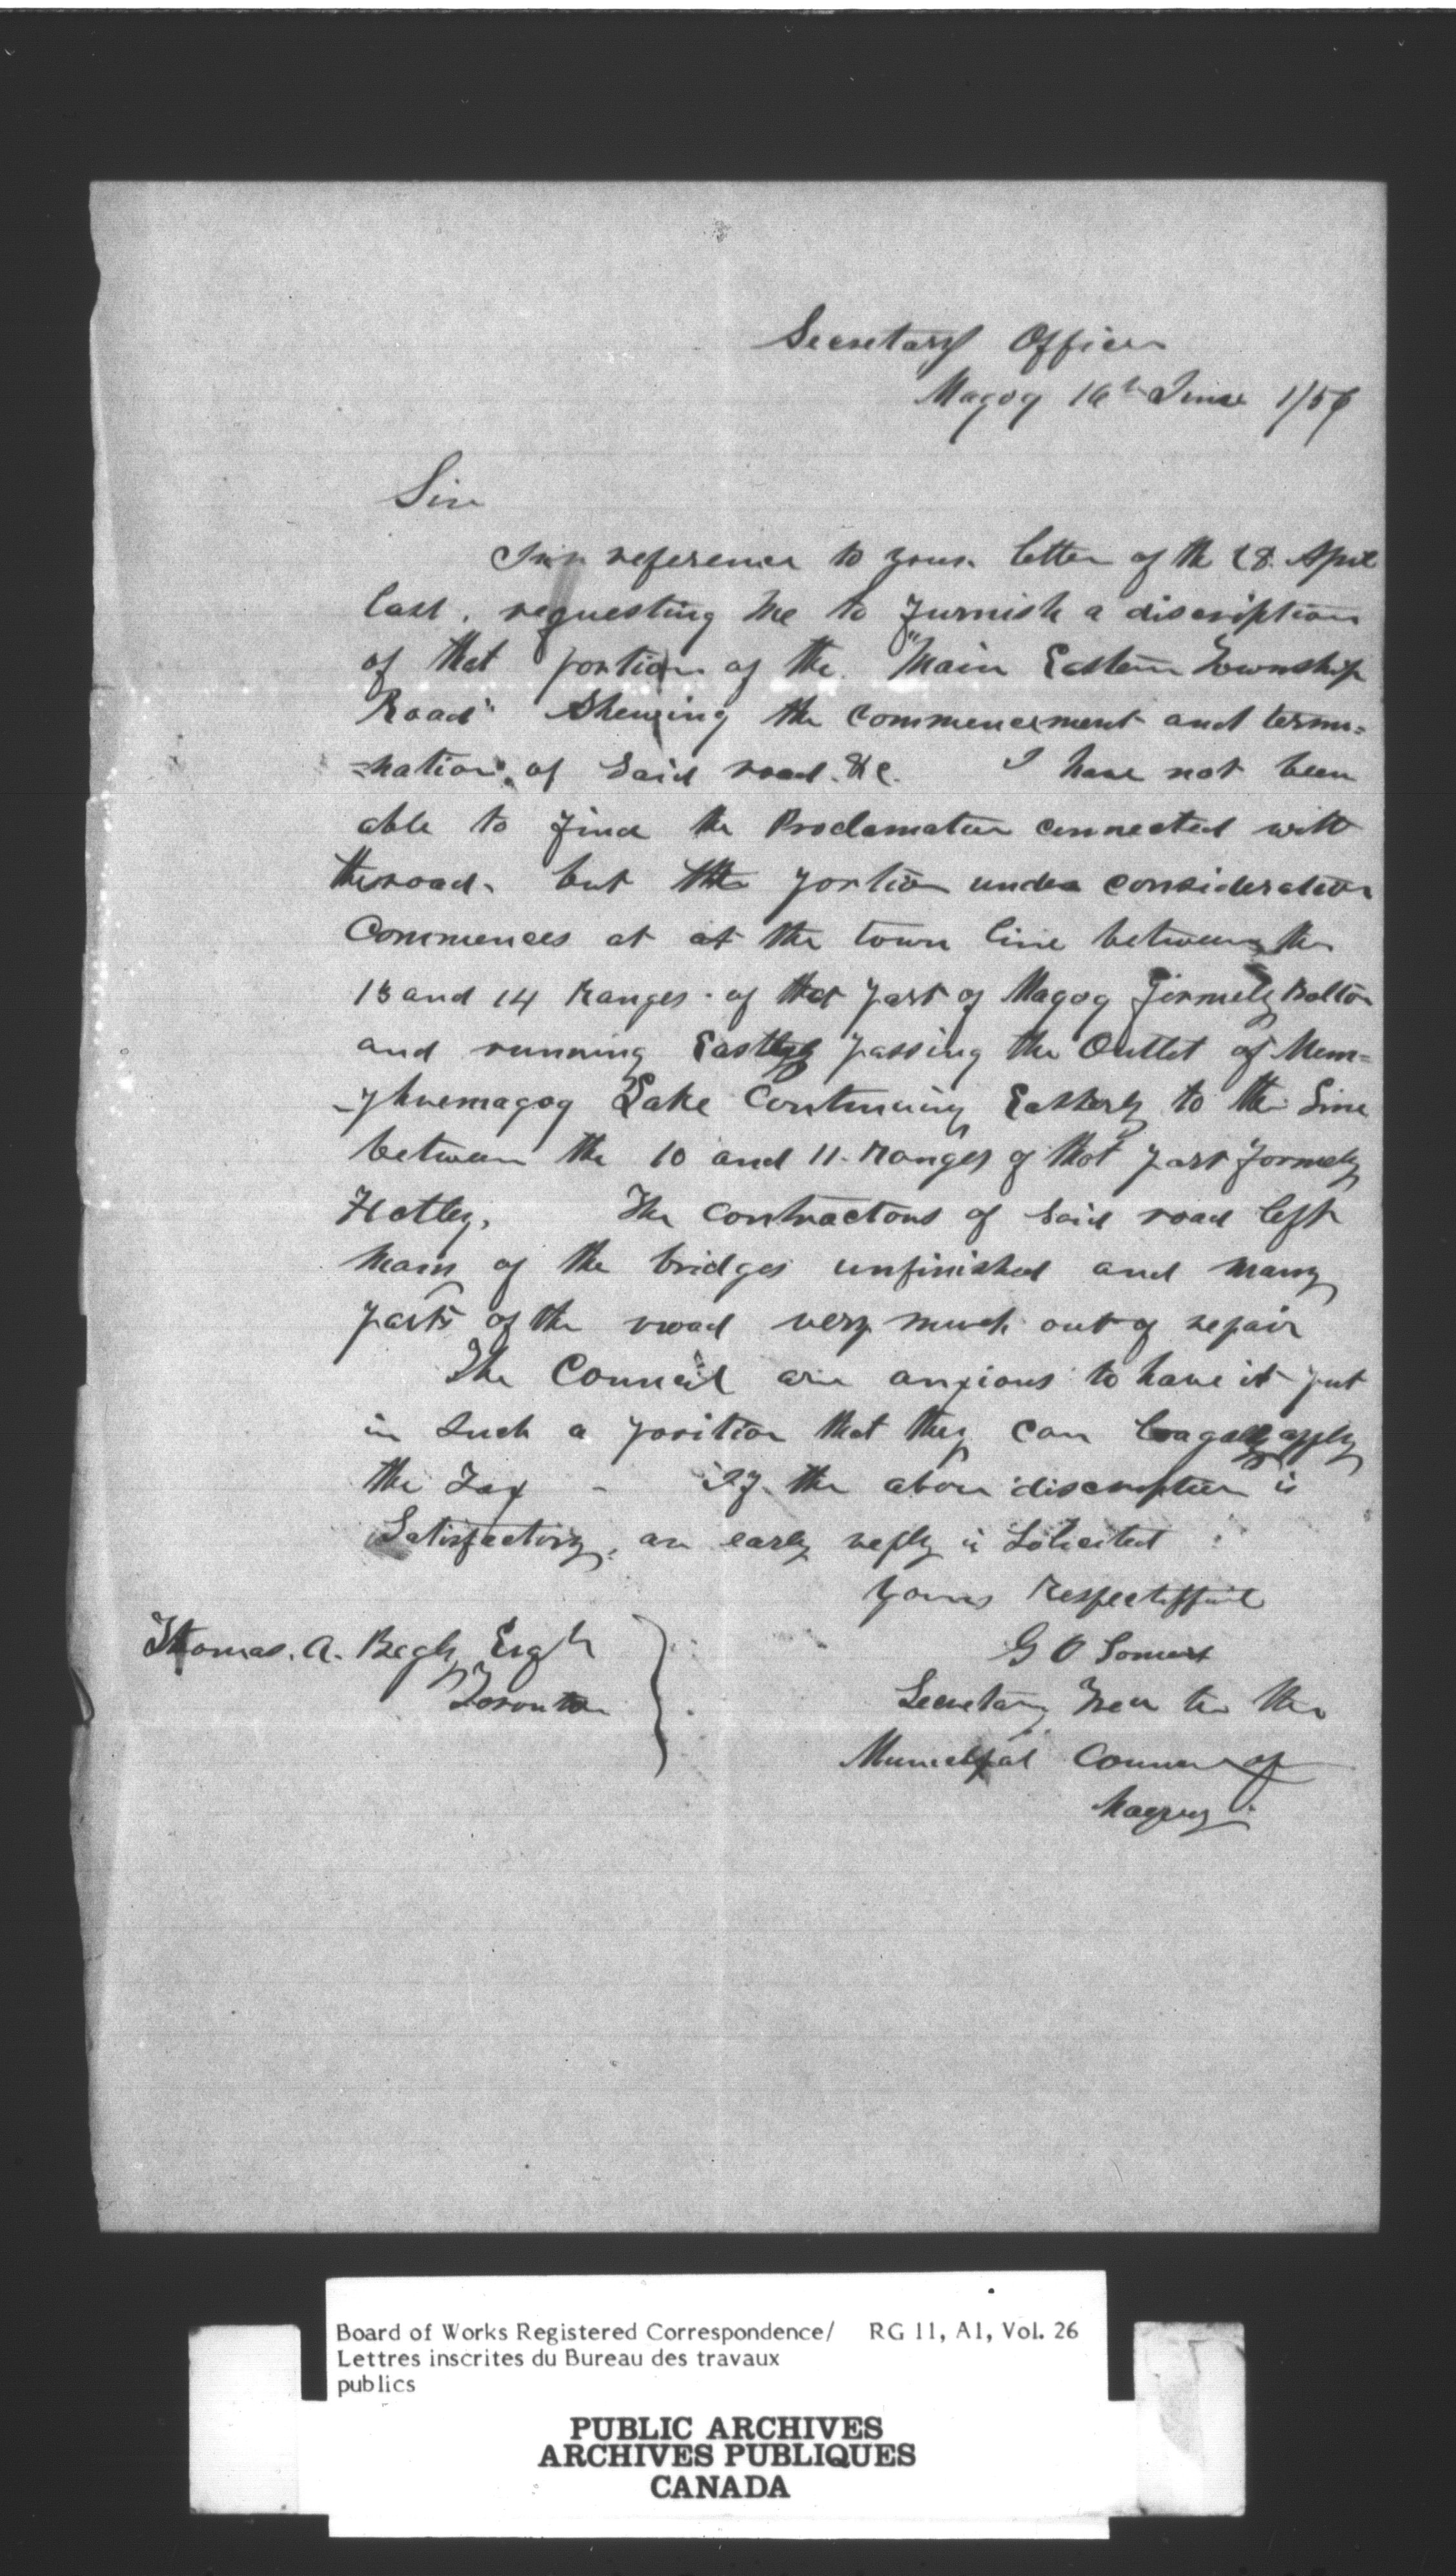 Secretary Office
Magog 16th June 1/56
Sir
In reference to your letter of the 18. April
last, requesting me to furnish a discription
of that portion of the "Main Eastern Township
Road" Shewing the Commencement and termi=
=nation of Said road &c. I have not been
able to find the Proclamation connected with
the road. but the portion under consideration
Commences at at the town line between the
13 and 14 Ranges of that part of Magog formely Bolton
and running Easterly passing the Outlet of Mem=
-phremagog Lake Continuing Easterly to the Line
between the 10 and 11 Ranges of that part formely
Hatley, The Contractors of Said road left
many of the bridges unfinished and many
parts of the road very much out of repair
The Council are anxious to have it put
in Such a position that they can apply
the Tax - If the above discription is
Satisfactory, an early reply is Solicited
Yours Respectfull
G O Somers
Secretary Trea to the
Municipal Council of
Magog
Thomas. A. Begly Esqr
Toronto
Board of Works Registered Correspondence/ RG 11, A1, Vol. 26
Lettres inscrites du Bureau des travaux
publics
PUBLIC ARCHIVES
ARCHIVES PUBLIQUES
CANADA